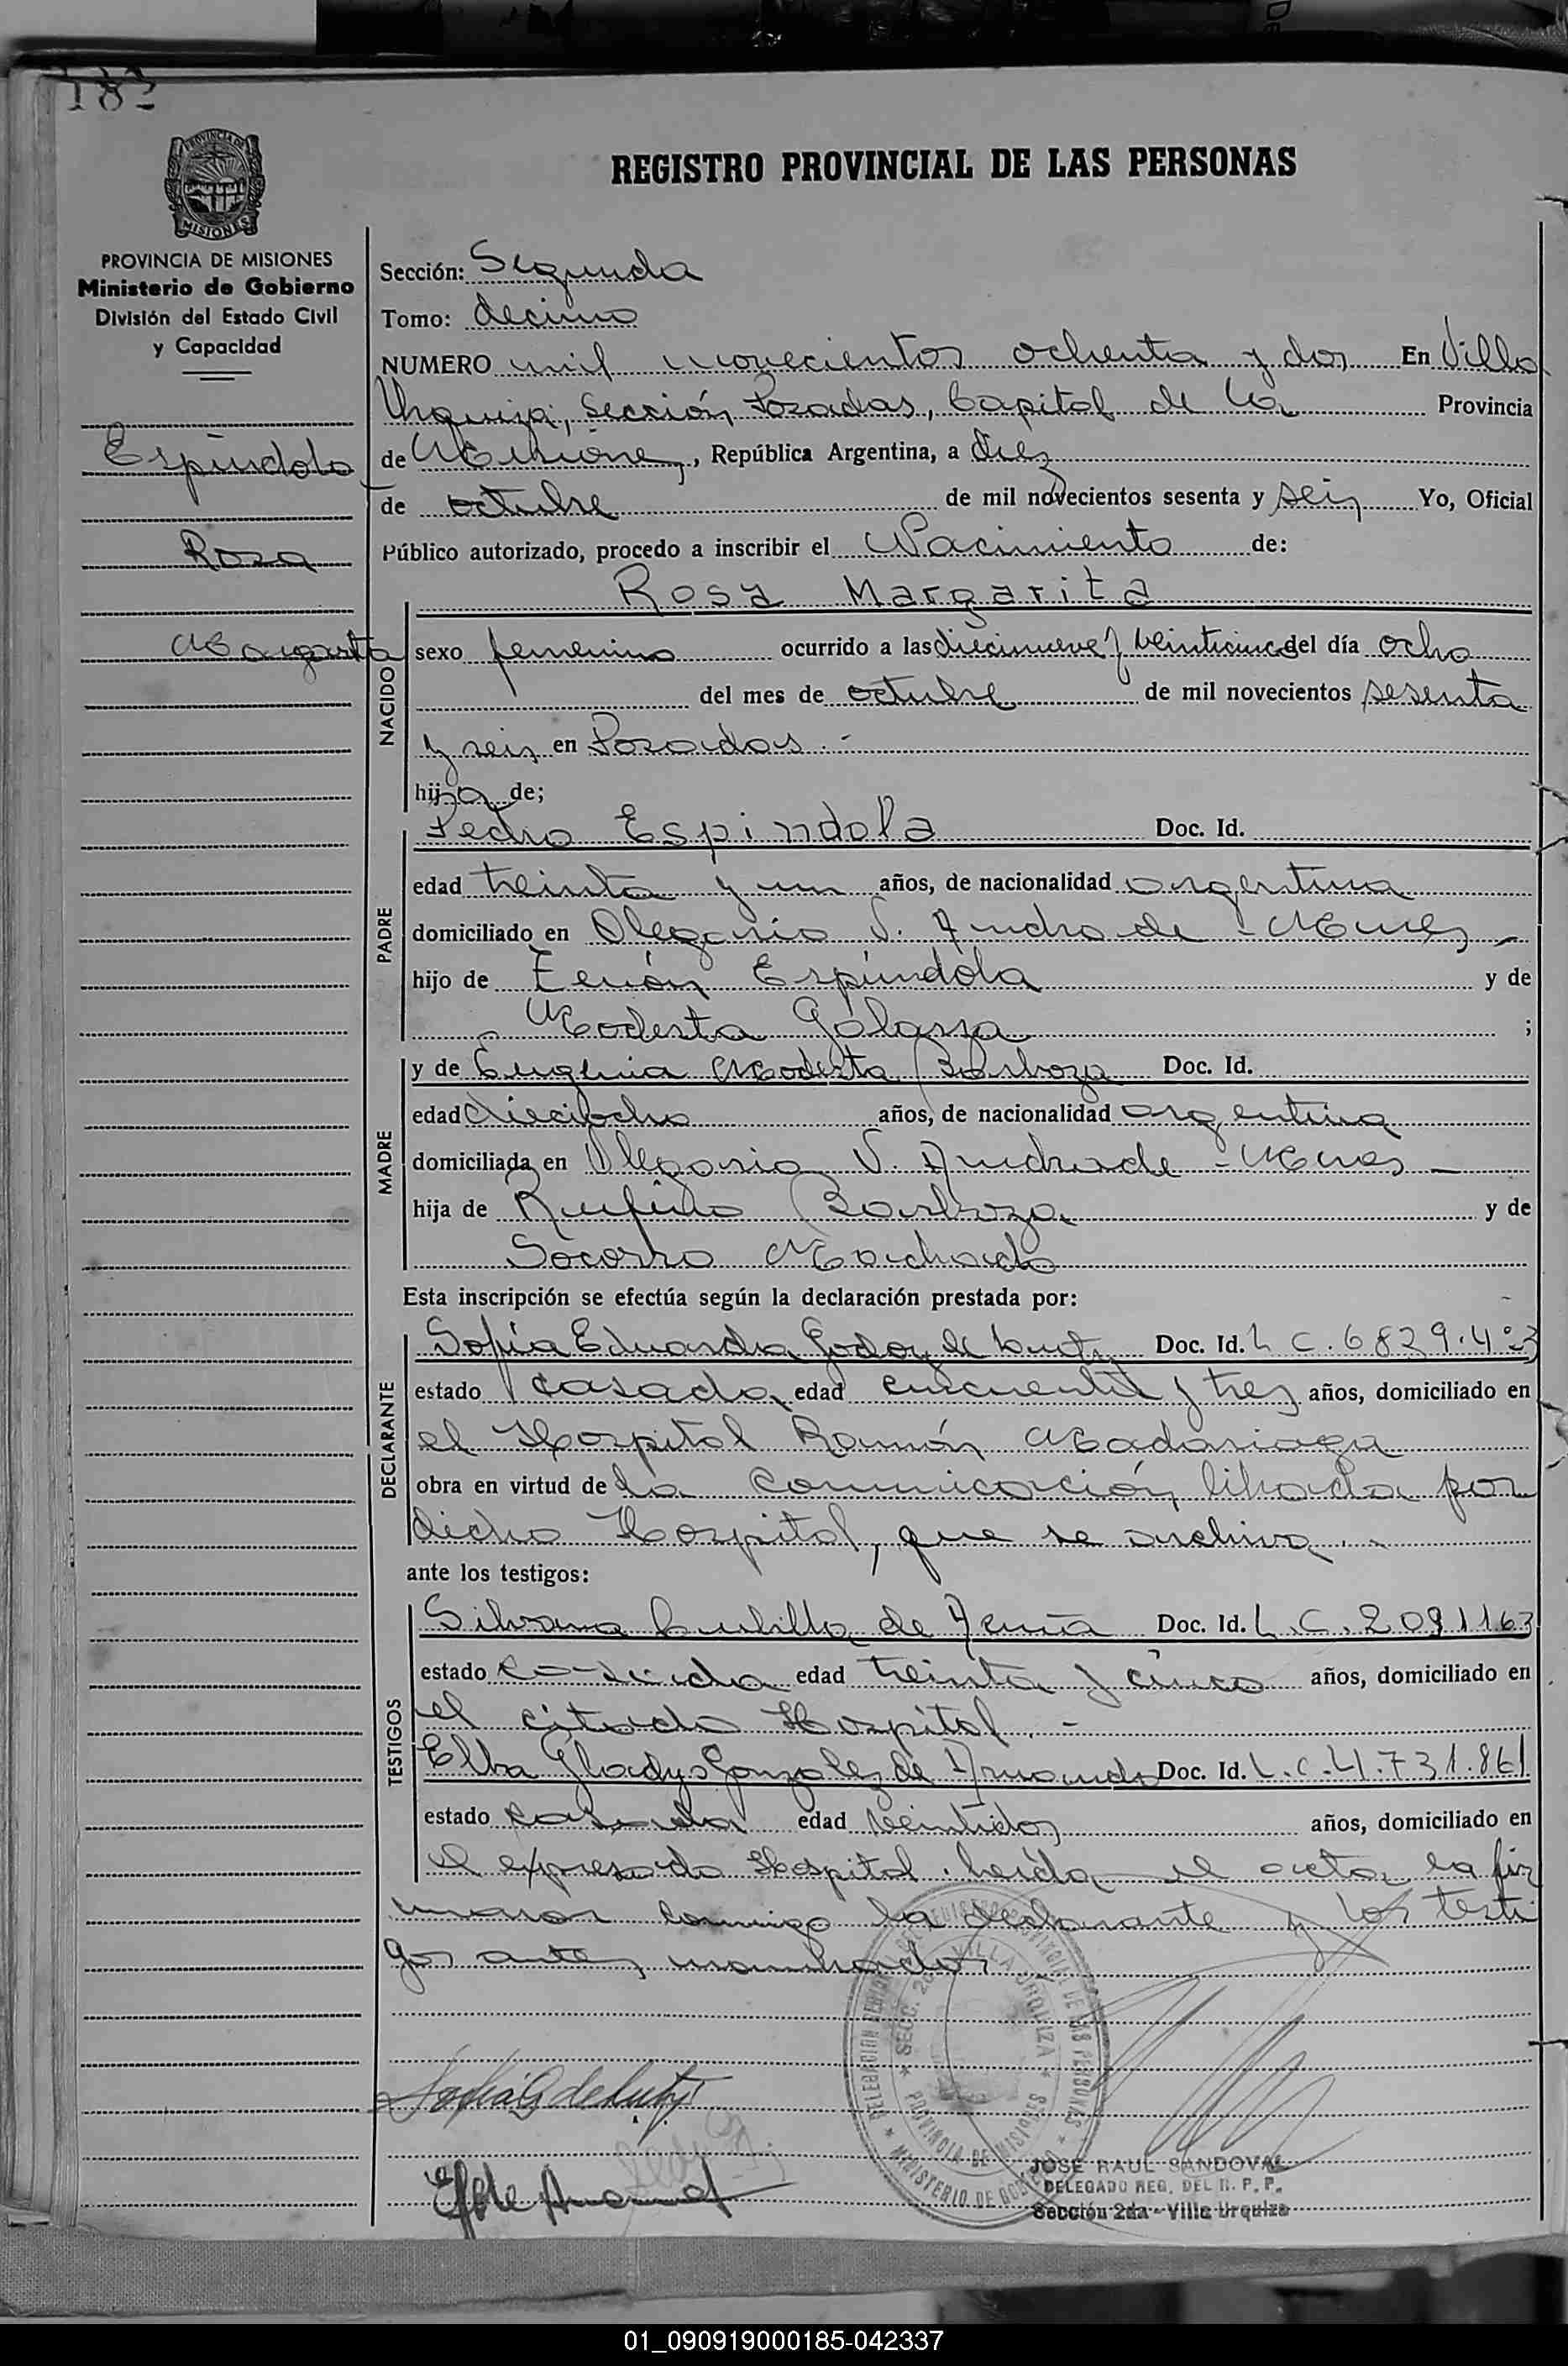 183
PROVINCIA DE
MISIONES
REGISTRO PROVINCIAL DE LAS PERSONAS
PROVINCIA DE MISIONES
Ministerio de Gobierno
División del Estado Civil
y Capacidad
Espindola
Rosa
Margarita
Sección: Segunda
Tomo: decimo
NUMERO mil novecientos ochenta y dos En Villa
Urquiza, Sección Posadas, Capital de la Provincia
de Misiones, República Argentina, a diez
de octubre de mil novecientos sesenta y seis Yo, Oficial
Público autorizado, procedo a inscribir el Nacimiento de:
Rosa Margarita
NACIDO
sexo femenino ocurrido a las diecinueve y veinticinco del día ocho
del mes de octubre de mil novecientos sesenta
y seis en Posadas.-
hija de;
PADRE
Pedro Espindola Doc. Id.
edad treinta y un años, de nacionalidad argentina
domiciliado en Olegario V. Andrade - Mnes -
hijo de Espíndola y de
Modesta Galarza ;
MADRE
y de Eugenia Modesta Barboza Doc. Id.
edad dieciocho años, de nacionalidad argentina
domiciliada en Olegario V. Andrade - Mnes -
hija de Rufino Barboza y de
Socorro Machado
Esta inscripción se efectúa según la declaración prestada por:
DECLARANTE
Sofía Eduarda Godoy de Doc. Id. L C. 6829.403
estado casada edad cincuenta y tres años, domiciliado en
el Hospital Ramón Madariaga
obra en virtud de la comunicación librada por
dicho Hospital, que se archiva.-
ante los testigos:
TESTIGOS
Silvana de Acuña Doc. Id. L.C. 2091163
estado casada edad treinta y cinco años, domiciliado en
el citado Hospital.-
Elba Gladys Gonzalez de Doc. Id. L.C. 4.731.861
estado casada edad veintidos años, domiciliado en
el expresado Hospital. Leída el acta, la fir
maron conmigo la declarante y los testi
gos antes nombrados
DELEGACION REGISTRO PROVINCIAL DE LAS PERSONAS
SECC. 2da VILLA URQUIZA
PROVINCIA DE MISIONES
MINISTERIO DE GOBIERNO
JOSE RAUL SANDOVAL
DELEGADO REG. DEL R. P. P.
Sección 2da - Villa Urquiza
01_090919000185-042337